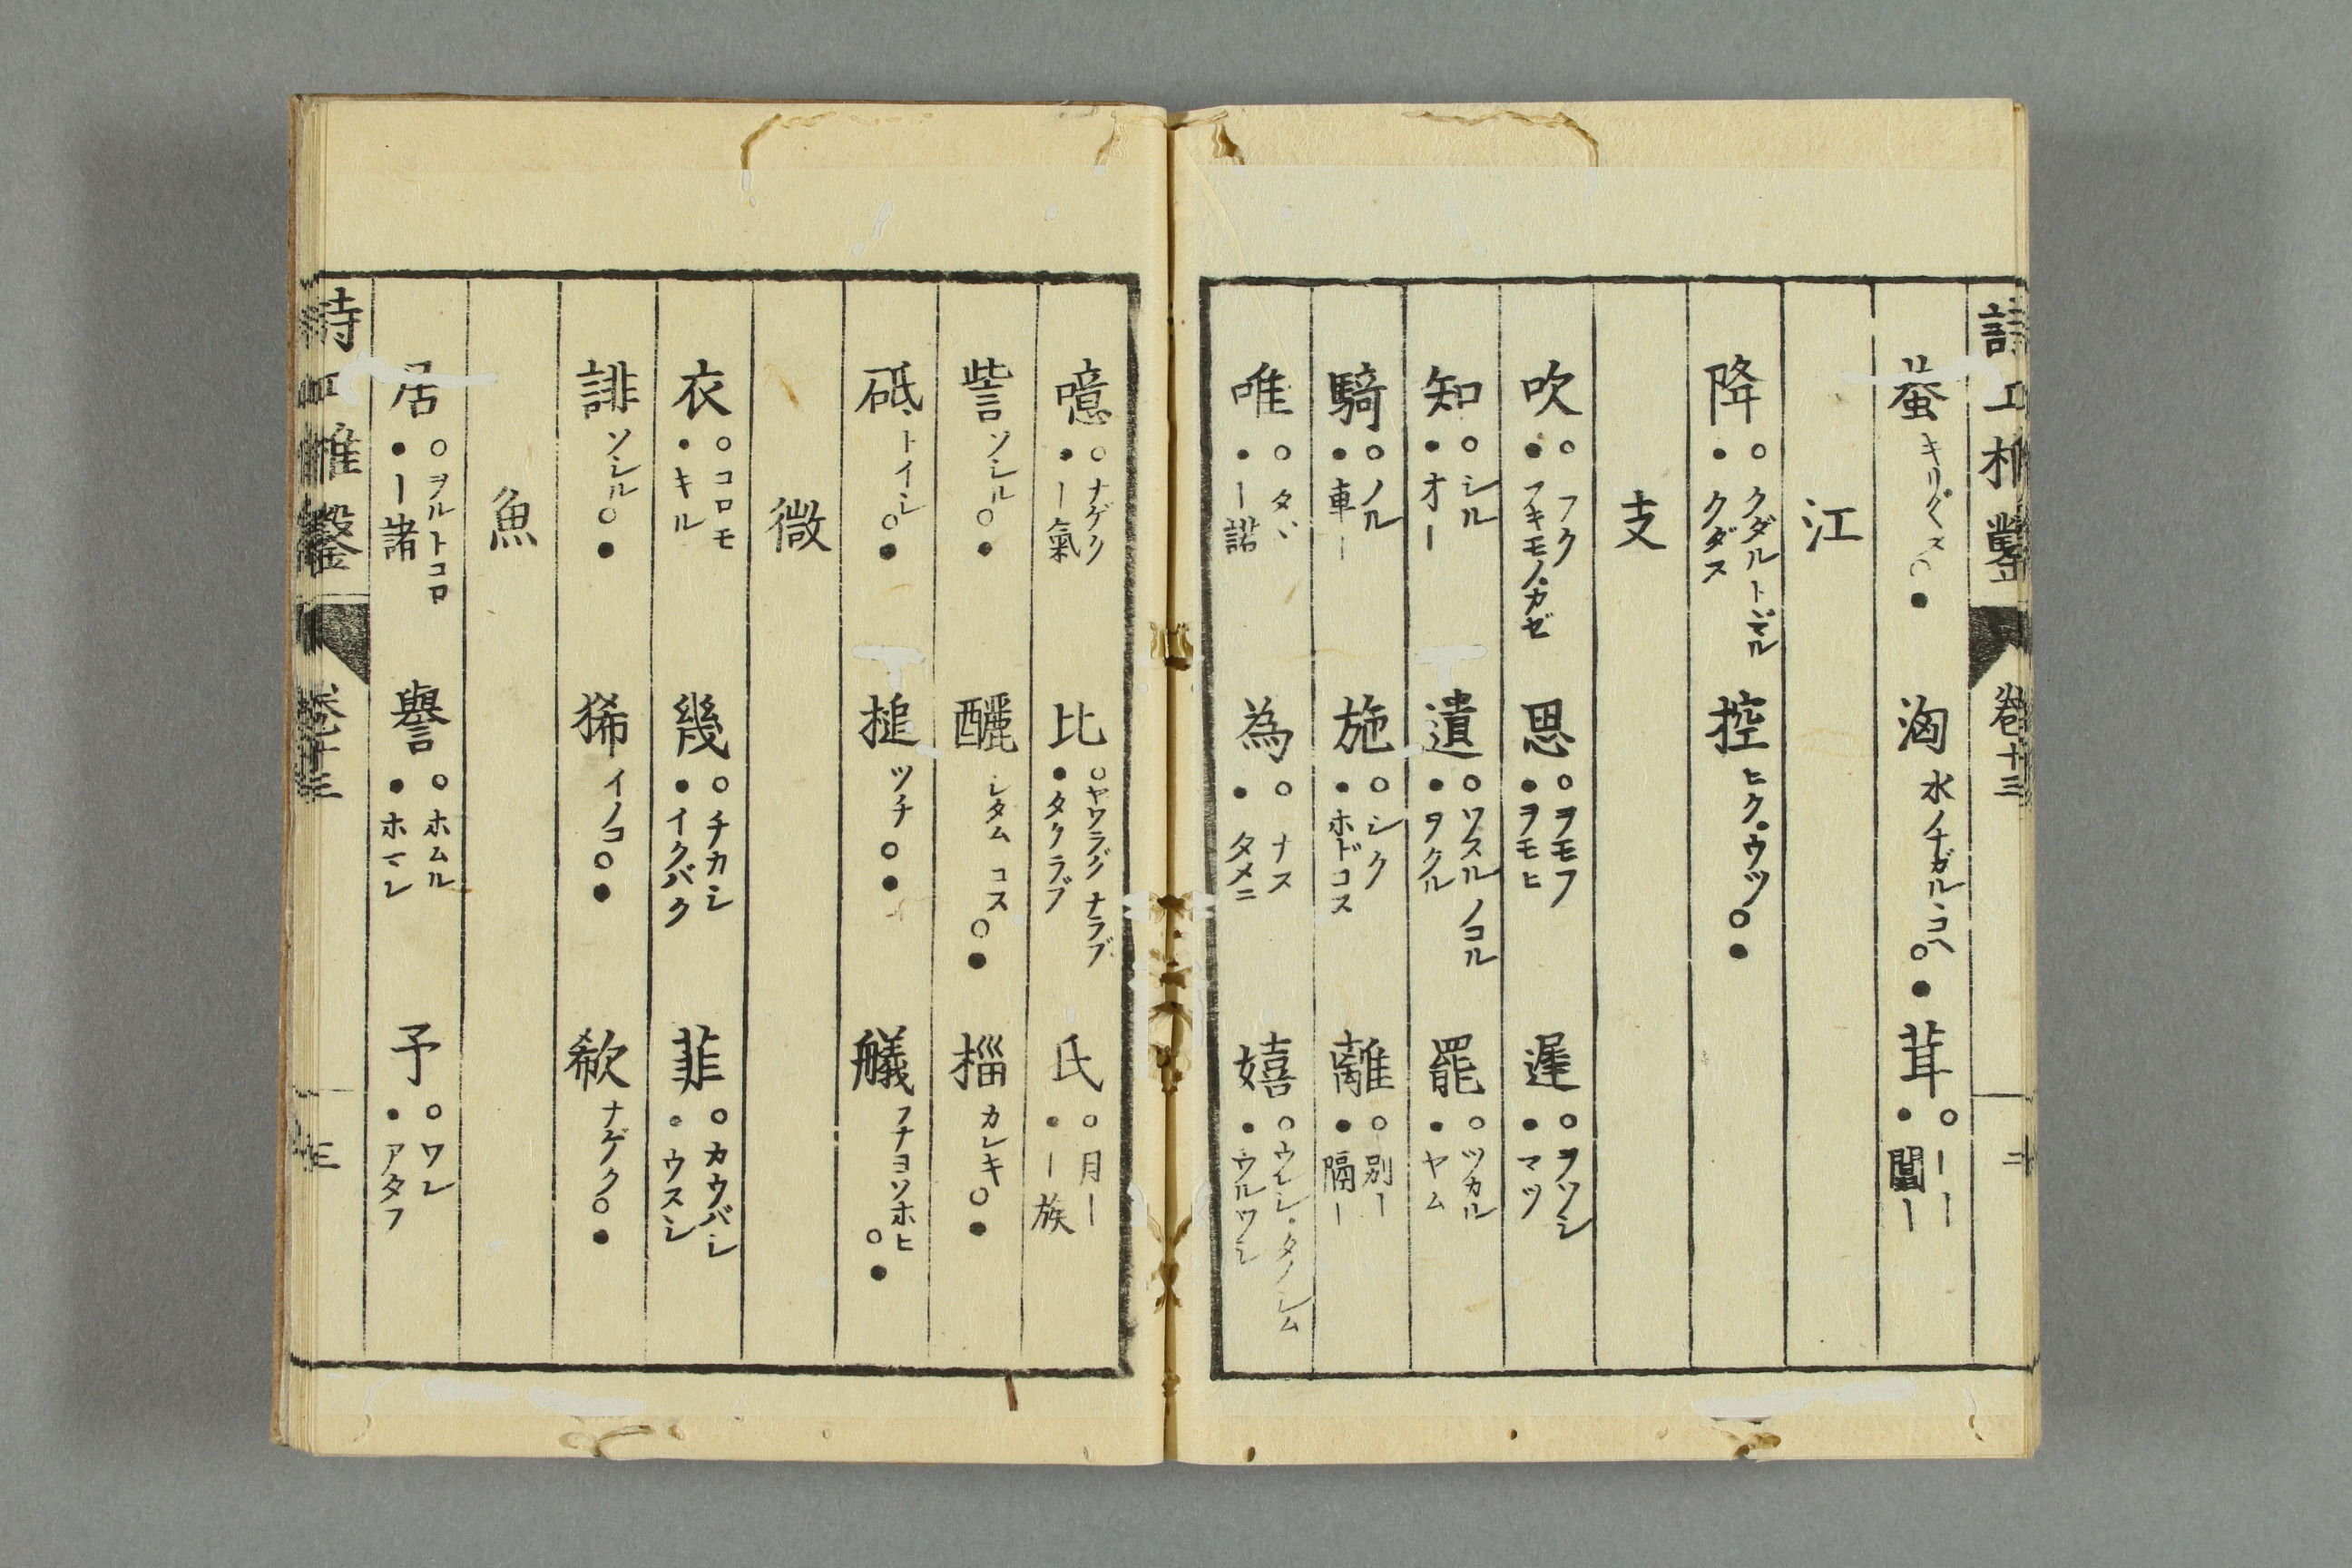 詩工推鑿 卷十三 二
蛬 キリ〲ス○● 洶 水ノナガルヽコヘ○● 茸 ○ーー ●闒ー
江
降 ○クダルトヾマル ●クダス 控 ヒク・ウツ○●
支
吹 ○フク ●フキモノ・カゼ 思 ○ヲモフ ●ヲモヒ 遲 ○ヲソシ ●マツ
知 ○シル ●オー 遺 ○ワスル ノコル ●ヲクル 罷 ○ツカル ●ヤム
騎 ○ノル ●車ー 施 ○シク ●ホドコス 離 ○別ー ●隔ー
唯 ○タヾ ●ー諾 為 ○ナス ●タメニ 嬉 ○ウレシ・タノシム ●ウルワシ
噫 ○ナゲク ●ー氣 比 ○ヤワラグ ナラブ ●タクラブ 氏 ○月ー ●ー族
訾 ソシル○● 釃 シタム コス○● 椔 カレキ○●
砥 トイシ○● 搥 ツチ○● 艤 フナヨソホヒ○●
微
衣 ○コロモ ●キル 幾 ○チカシ ●イクバク 菲 ○カウバシ ●ウスシ
誹 ソシル○● 狶 イノコ○● 欷 ナゲク○●
魚
居 ○ヲルトコロ ●ー諸 譽 ○ホムル ●ホマレ 予 ○ワレ ●アタフ
詩工推鑿 卷十三 三